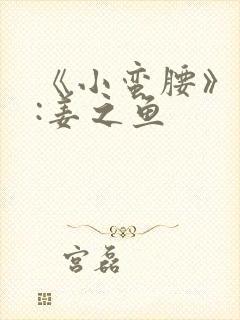 《小蛮腰》
:姜之鱼
宫磊